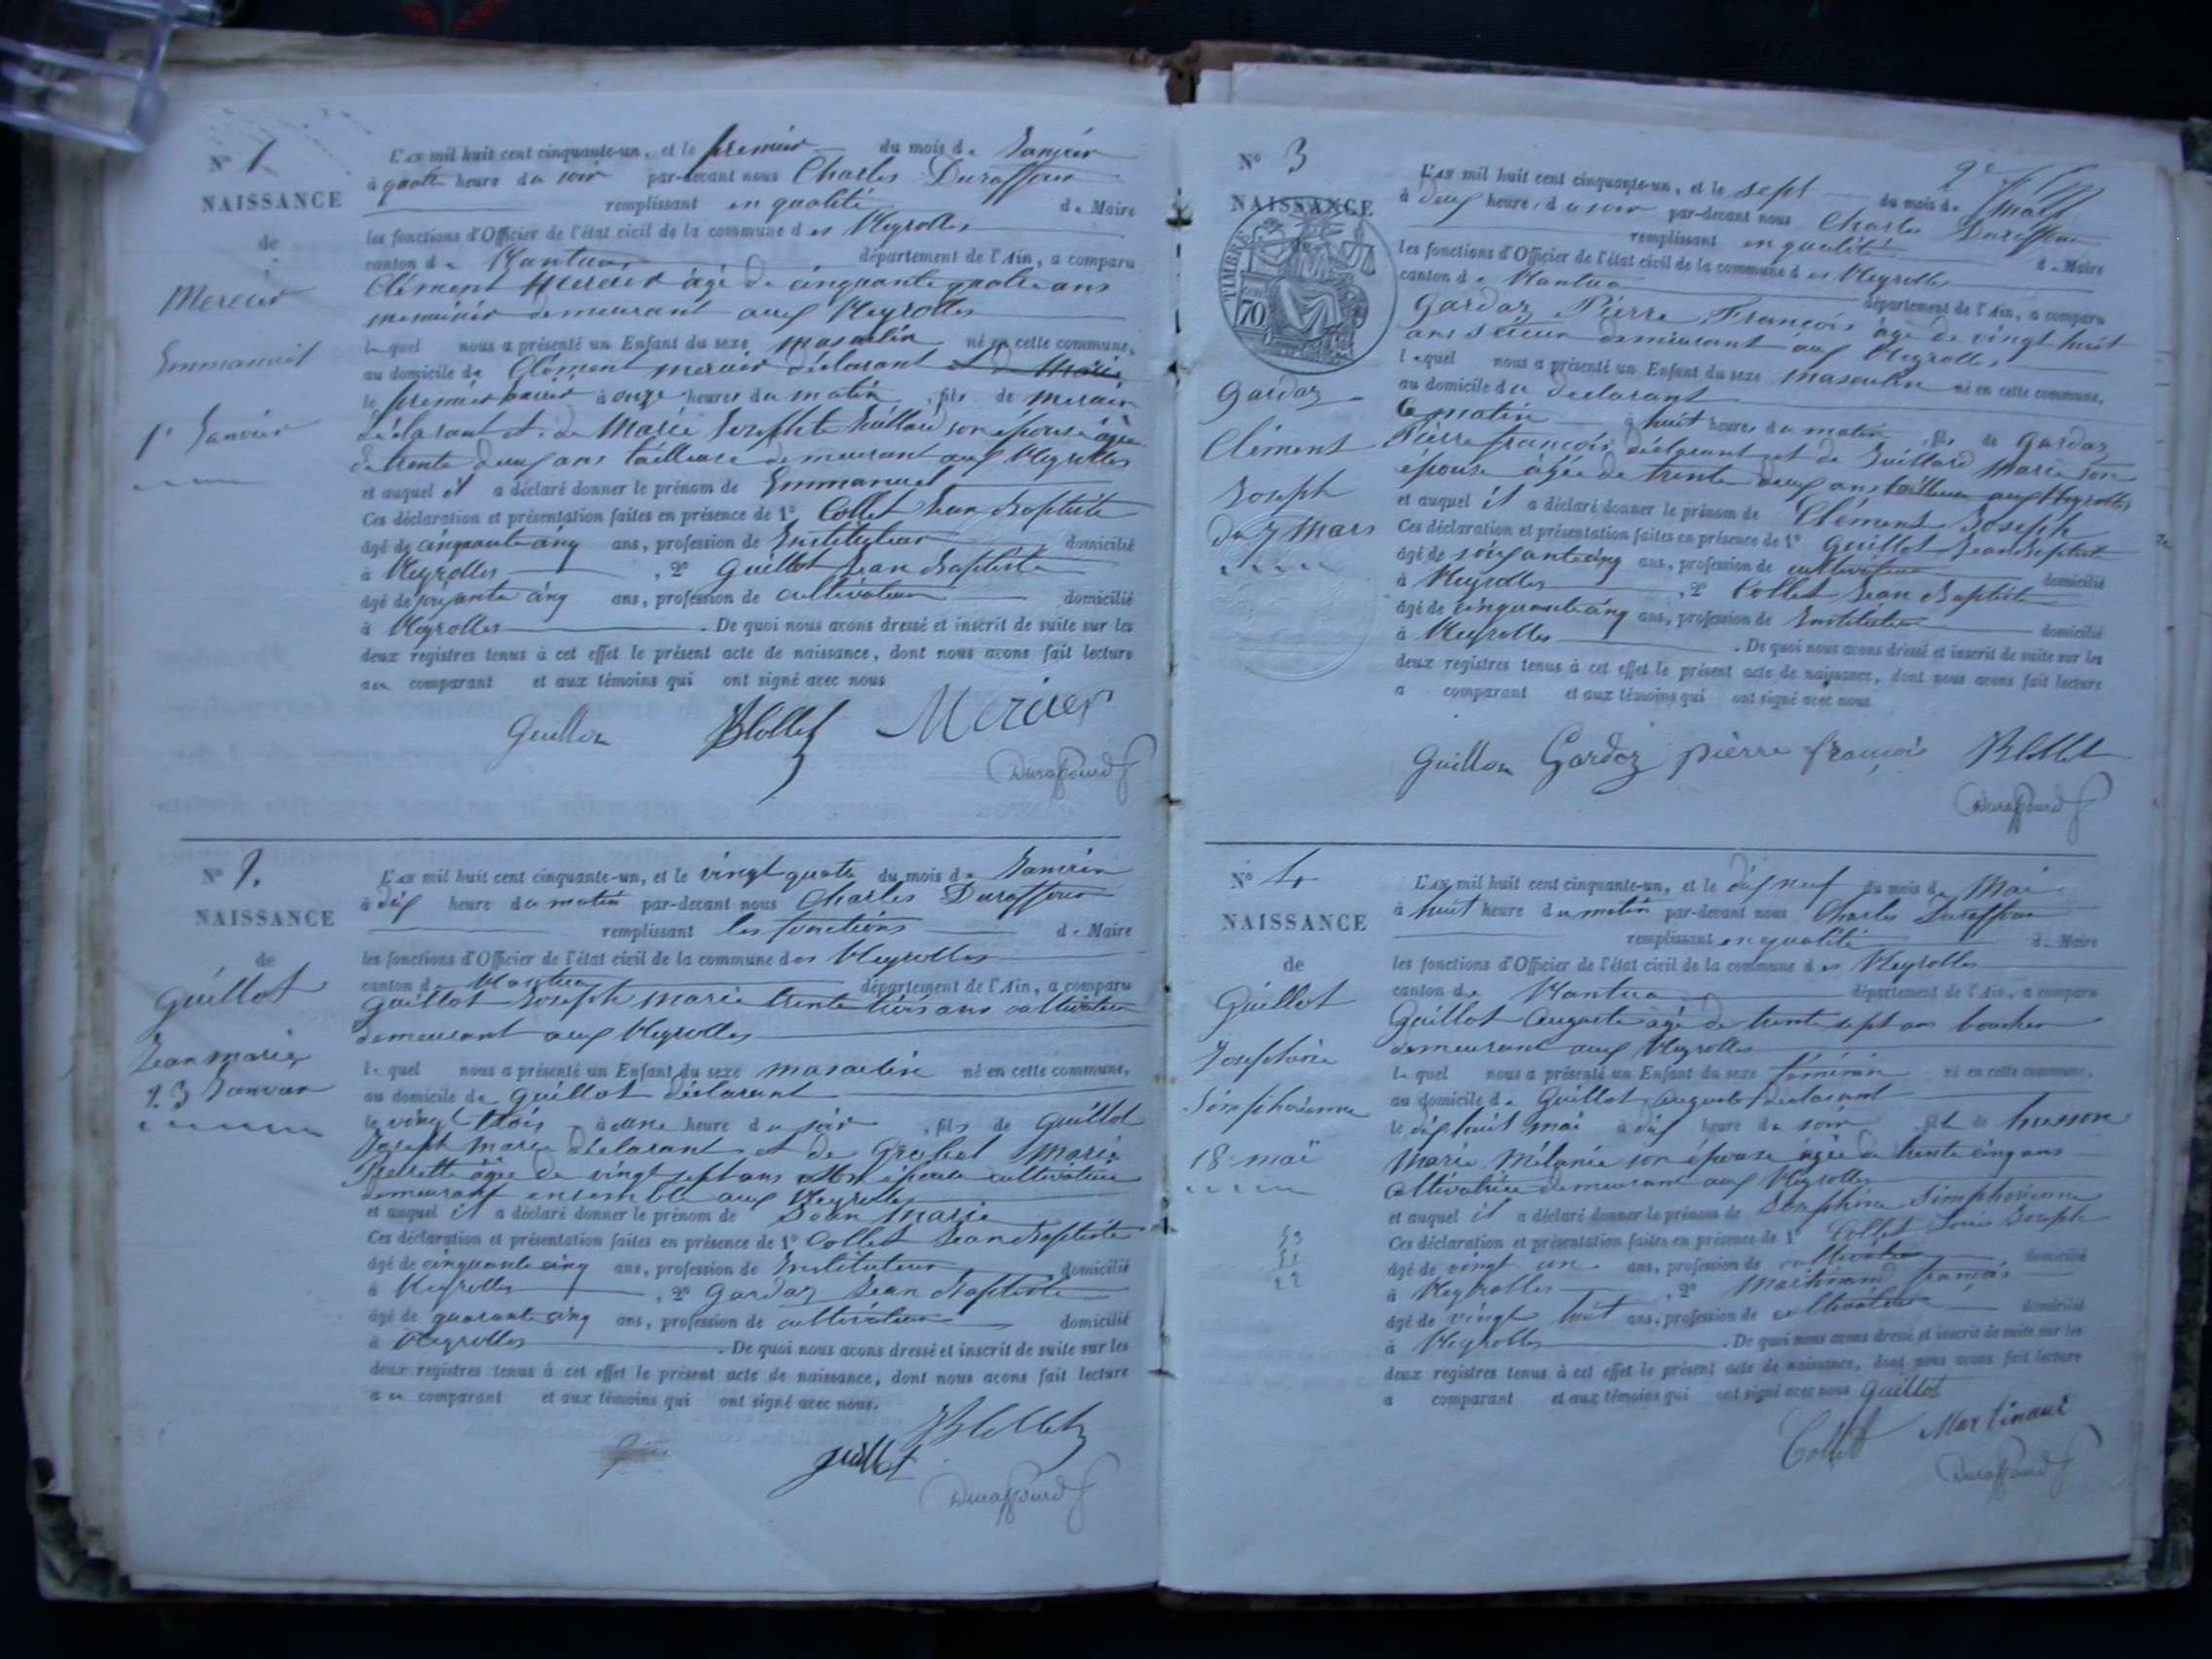 N° 1
NAISSANCE
de
Mercier
Emmanuel
1er Janvier
L'AN mil huit cent cinquante-un, et le premier du mois de Janvier
à quatre heure du soir par-devant nous Charles Duraffour
remplissant en qualité de Maire
les fonctions d'Officier de l'état civil de la commune des Neyrolles
canton de Nantua département de l'Ain, a comparu
Clément Mercier âgé de cinquante quatre ans
menuisier demeurant aux Neyrolles
lequel nous a présenté un Enfant du sexe masculin né en cette commune,
au domicile de Clément mercier déclarant
le premier à onze heures du matin, fils de mercier
déclarant et de Marie Josephte Guillard son épouse âgée
de trente deux ans tailleuse demeurant aux Neyrolles
et auquel il a déclaré donner le prénom de Emmanuel
Ces déclaration et présentation faites en présence de 1° Collet Jean Baptiste
âgé de cinquante cinq ans, profession de Instituteur domicilié
à Neyrolles, 2° Guillot Jean Baptiste
âgé de soixante cinq ans, profession de cultivateur domicilié
à Neyrolles. De quoi nous avons dressé et inscrit de suite sur les
deux registres tenus à cet effet le présent acte de naissance, dont nous avons fait lecture
au comparant et aux témoins qui ont signé avec nous
Guillon JBCollet Mercier
Duraffourd
N° 2.
NAISSANCE
de
Guillot
Jean marie
23 Janvier
L'AN mil huit cent cinquante-un, et le vingt quatre du mois de Janvier
à dix heure du matin par-devant nous Charles Duraffour
remplissant les fonctions de Maire
les fonctions d'Officier de l'état civil de la commune des Neyrolles
canton de Nantua département de l'Ain, a comparu
Guillot Joseph marie trente trois ans cultivateur
demeurant aux Neyrolles
lequel nous a présenté un Enfant du sexe masculin né en cette commune,
au domicile de Guillot déclarant
le vingt trois à une heure du soir, fils de Guillot
Joseph marie déclarant et de Grobel Marie
Pierrette âgée de vingt sept ans son épouse cultivatrice
demeurant ensemble aux Neyrolles
et auquel il a déclaré donner le prénom de Jean Marie
Ces déclaration et présentation faites en présence de 1° Collet Jean Baptiste
âgé de cinquante cinq ans, profession de Instituteur domicilié
à Neyrolles, 2° Gardaz Jean Baptiste
âgé de quarante cinq ans, profession de cultivateur domicilié
à Neyrolles. De quoi nous avons dressé et inscrit de suite sur les
deux registres tenus à cet effet le présent acte de naissance, dont nous avons fait lecture
au comparant et aux témoins qui ont signé avec nous.
JBCollet
guillot
Duraffourd
N° 3
NAISSANCE
TIMBRE
70
Gardaz
Clément
Joseph
du 7 Mars
L'AN mil huit cent cinquante-un, et le sept du mois de Mars
à deux heure, du soir par-devant nous Charles Duraffour
remplissant en qualité de Maire
les fonctions d'Officier de l'état civil de la commune des Neyrolles
canton de Nantua département de l'Ain, a comparu
Gardaz Pierre François âgé de vingt huit
ans scieur demeurant aux Neyrolles
lequel nous a présenté un Enfant du sexe masculin né en cette commune,
au domicile du déclarant
le matin à huit heures du matin, fils de Gardaz
Pierre françois déclarant et de Guillard Marie son
épouse âgée de trente deux ans tailleuse aux Neyrolles
et auquel il a déclaré donner le prénom de Clément Joseph
Ces déclaration et présentation faites en présence de 1° Guillot Jean Baptiste
âgé de soixante cinq ans, profession de cultivateur domicilié
à Neyrolles, 2° Collet Jean Baptiste
âgé de cinquante cinq ans, profession de Instituteur domicilié
à Neyrolles. De quoi nous avons dressé et inscrit de suite sur les
deux registres tenus à cet effet le présent acte de naissance, dont nous avons fait lecture
a comparant et aux témoins qui ont signé avec nous
Guillon Gardaz pierre françois JBCollet
Duraffourd
N° 4
NAISSANCE
de
Guillot
Josephine
Simphorienne
18 mai
L'AN mil huit cent cinquante-un, et le dix neuf du mois de Mai
à huit heure du matin par-devant nous Charles Duraffour
remplissant en qualité de Maire
les fonctions d'Officier de l'état civil de la commune des Neyrolles
canton de Nantua département de l'Ain, a comparu
Guillot Auguste âgé de trente sept ans boucher
demeurant aux Neyrolles
lequel nous a présenté un Enfant du sexe féminin né en cette commune,
au domicile de Guillot Auguste déclarant
le dix huit mai à dix heure du soir fil de husson
Marie Mélanie son épouse âgée de trente cinq ans
cultivatrice demeurant aux Neyrolles
et auquel il a déclaré donner le prénom de Josephine Simphorienne
Ces déclaration et présentation faites en présence de 1° Collet Louis Joseph
âgé de vingt un ans, profession de cultivateur domicilié
à Neyrolles, 2° Martinand françois
âgé de vingt huit ans, profession de cultivateur domicilié
à Neyrolles. De quoi nous avons dressé et inscrit de suite sur les
deux registres tenus à cet effet le présent acte de naissance, dont nous avons fait lecture
a comparant et aux témoins qui ont signé avec nous Guillot
Collet Martinand
Duraffourd